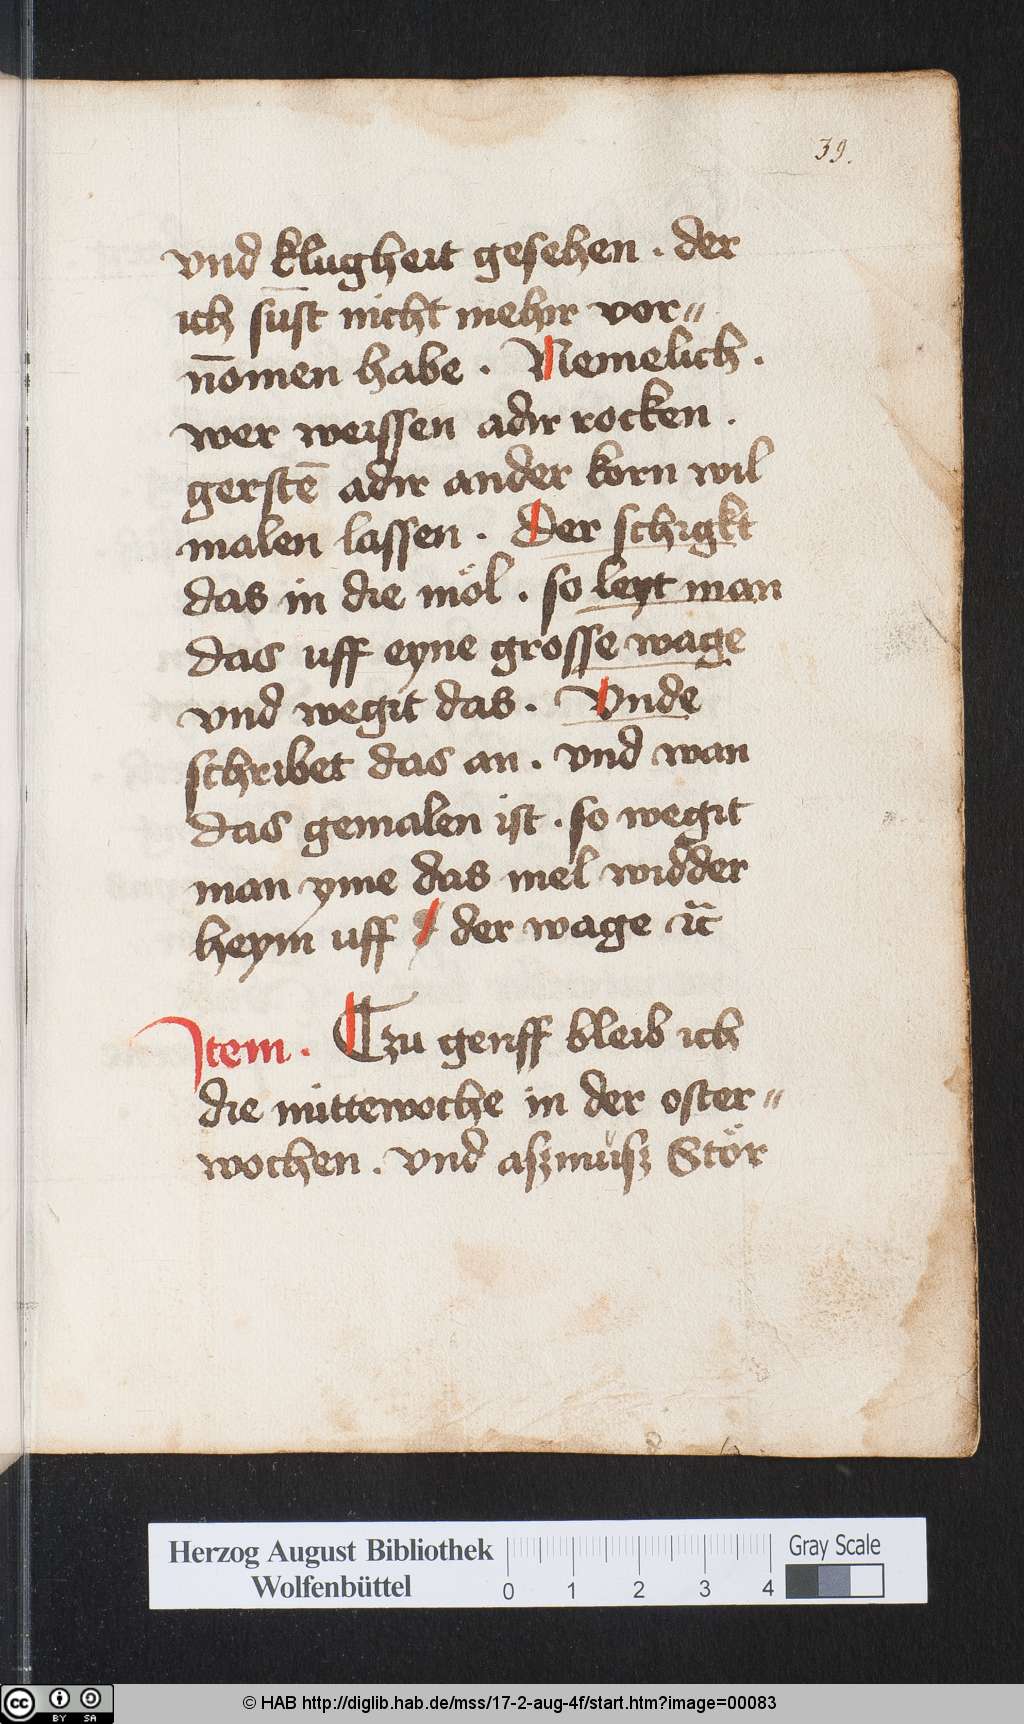 39.
vnd klugheit gesehen . der
ich su̅st nicht mehir vor〃
n̅omen habe . Nemelich .
wer weissen adir rocken .
gerste̅ adir ander korn wil
malen lassen . Der schigkt
das in die möl . so leyt man
das uff eyne grosse wage
vnd wegit das . Vnde
schribet das an . vnd wan
das gemalen ist . so wegit
man yme das mel widder
heym uff der wage
Item . Czu genff bleib ich
die mittewoche in der oster〃
wochen . vnd aszmüsz Stör
Herzog August Bibliothek
Wolfenbüttel
0 1 2 3 4
Gray Scale
cc BY SA
© HAB http://diglib.hab.de/mss/17-2-aug-4f/start.htm?image=00083